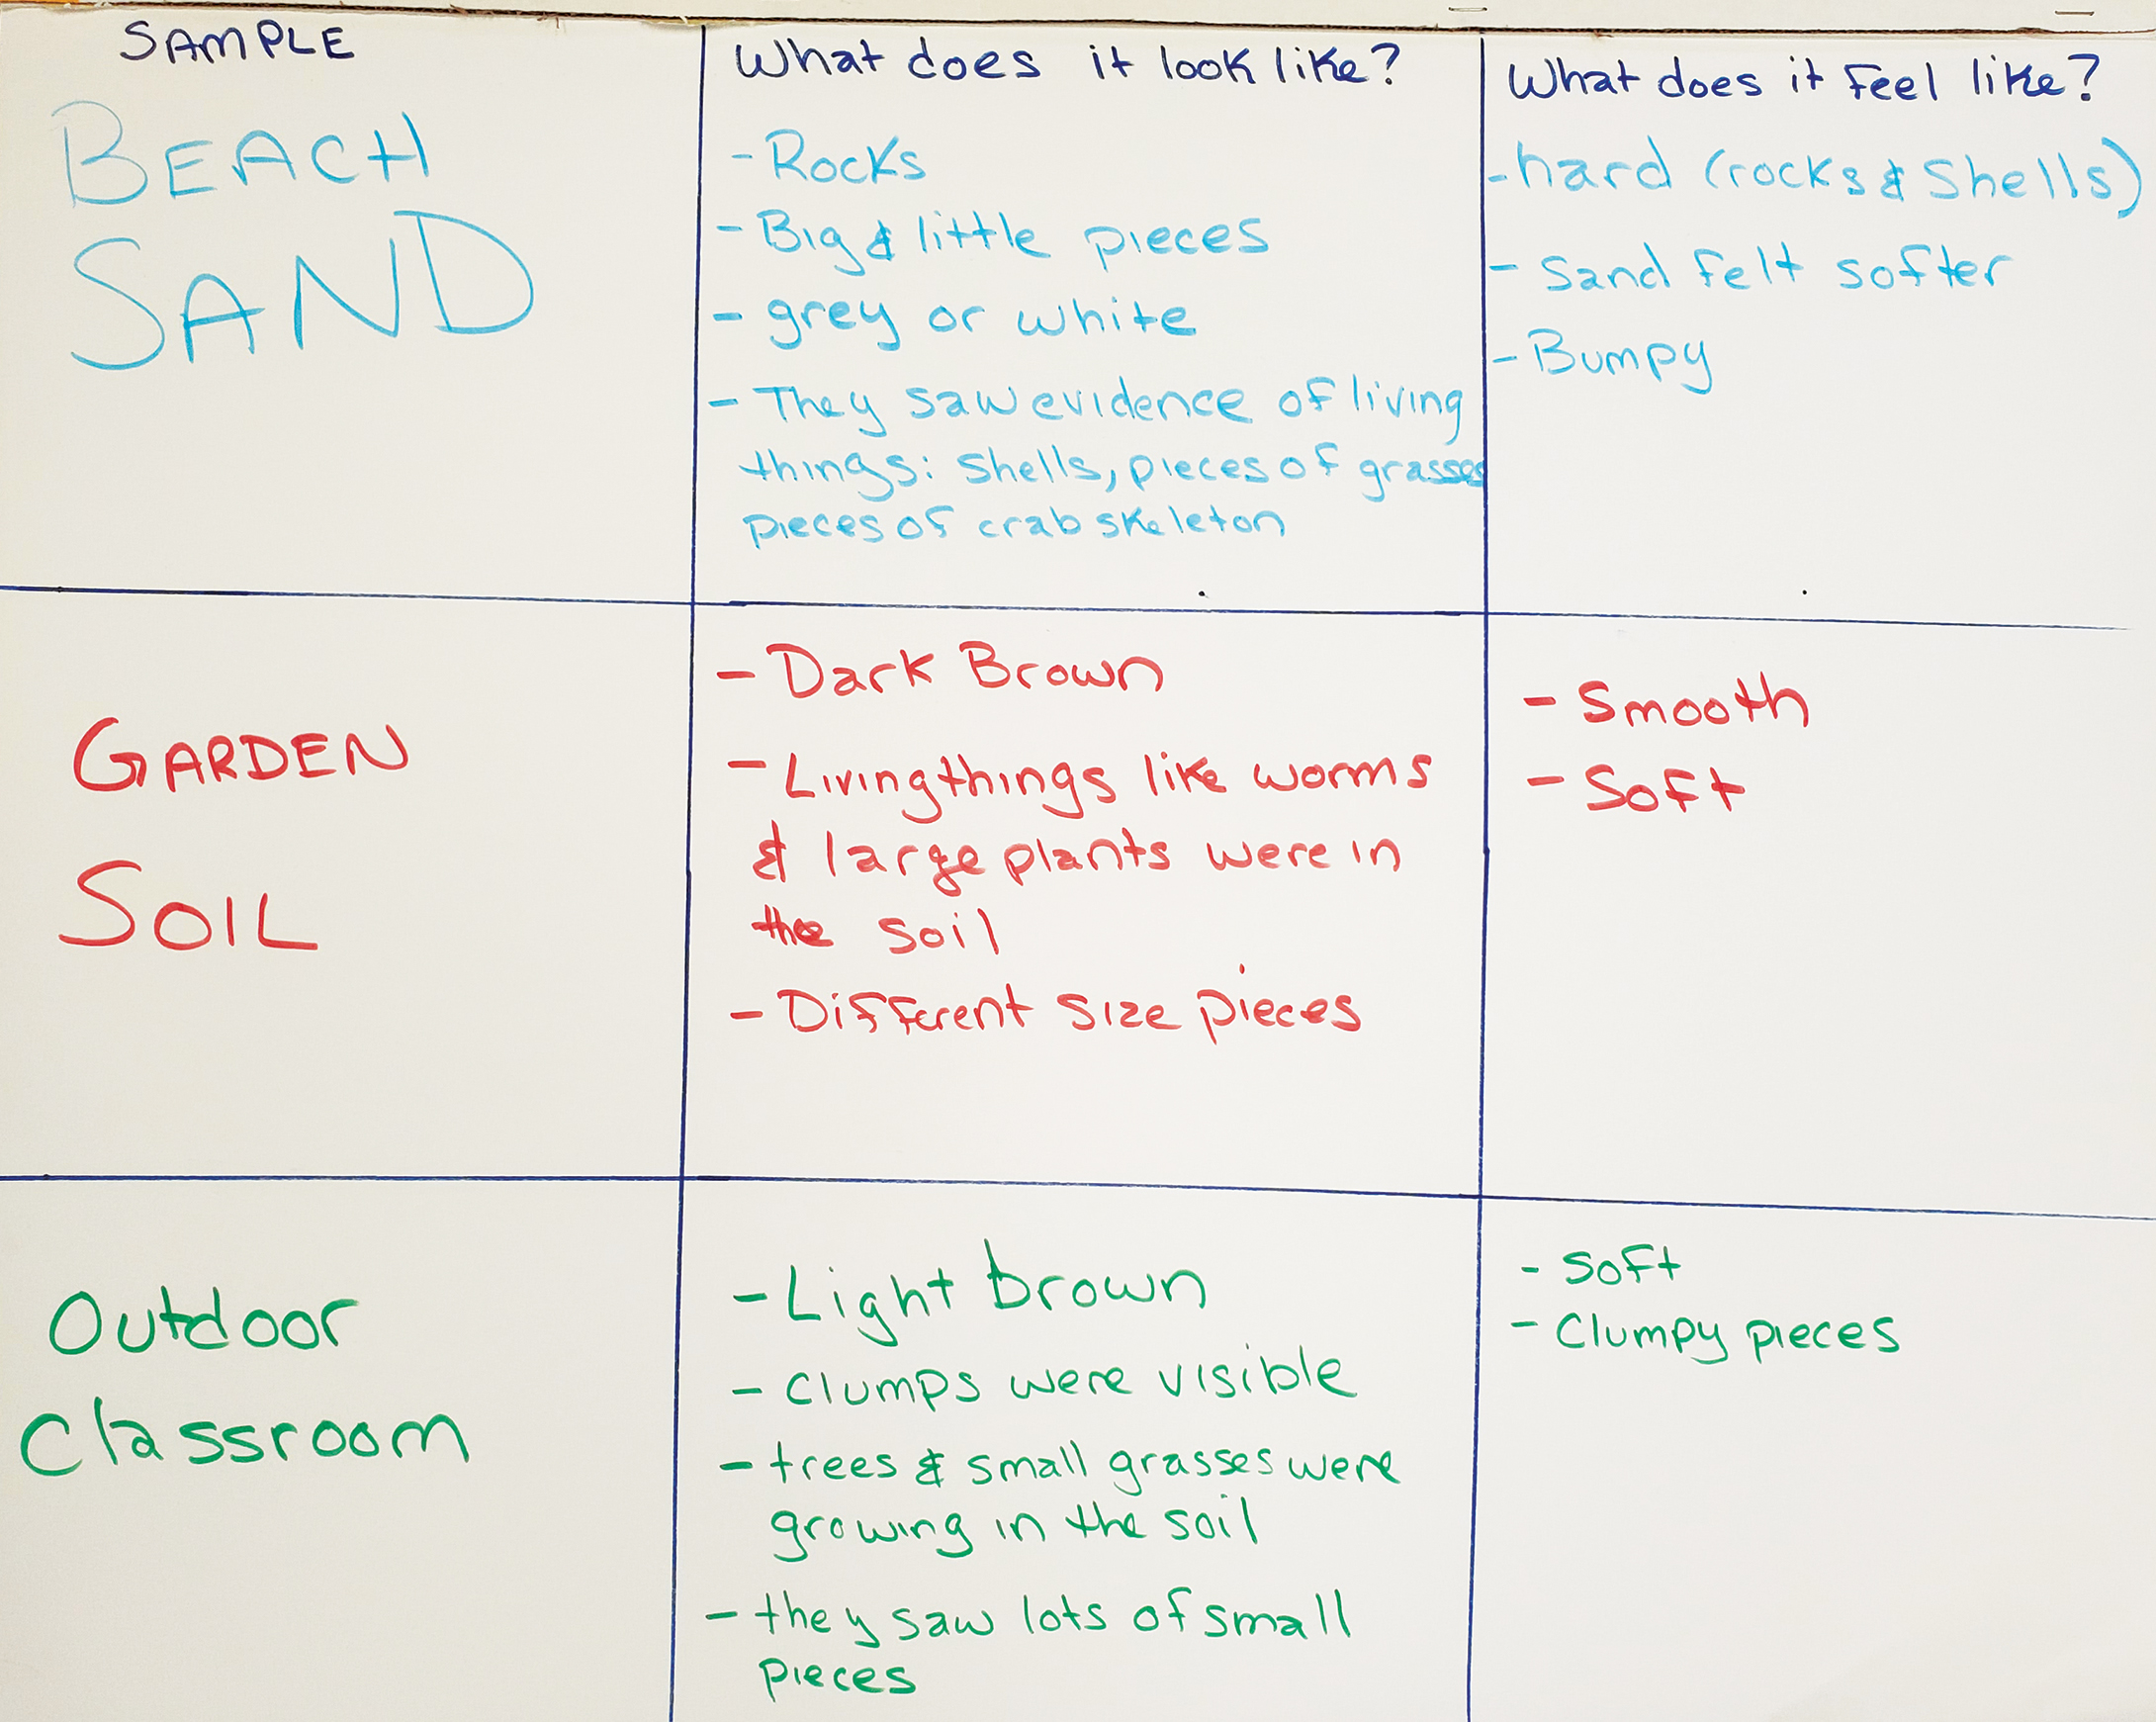 SAMPLE
What does it look like?
What does it feel like?
BEACH
SAND
- Rocks
- Big & little pieces
- grey or white
- They saw evidence of living
things: shells, pieces of grasses
pieces of crab skeleton
- hard (rocks & shells)
- Sand felt softer
- Bumpy
GARDEN
SOIL
- Dark Brown
- Living things like worms
& large plants were in
the soil
- Different size pieces
- Smooth
- Soft
Outdoor
Classroom
- Light brown
- Clumps were visible
- trees & small grasses were
growing in the soil
- they saw lots of small
pieces
- Soft
- Clumpy pieces